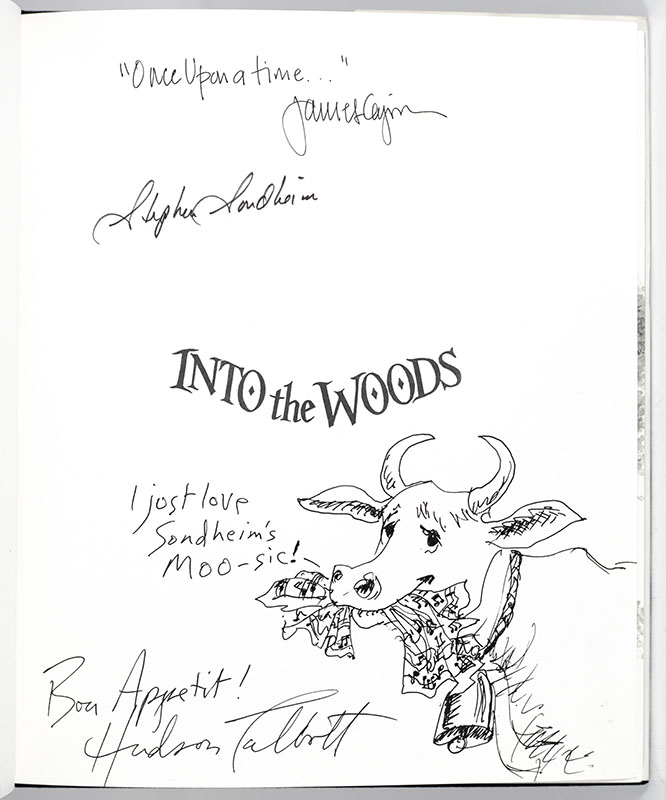 "Once Upon a time..."
James Lapine
Stephen Sondheim
INTO the WOODS
I just love
Sondheim's
MOO-sic!
Bon Appetit!
Hudson Talbott